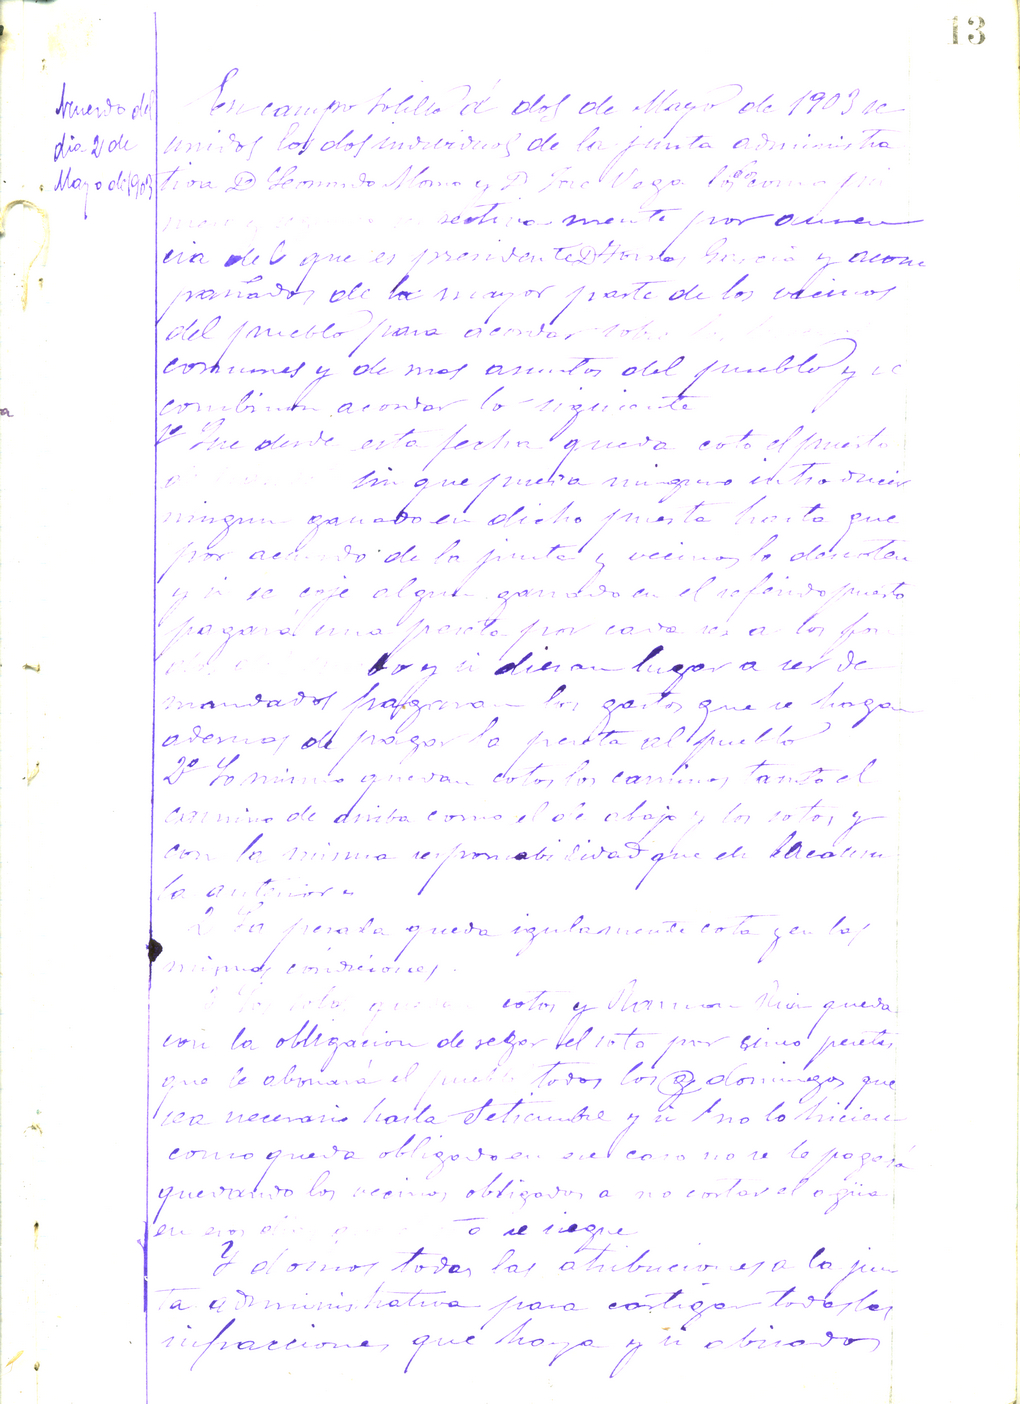 13
Acuerdo del
dia 2 de
Mayo de 1903
En campo solillo á dos de Mayo de 1903 re
unidos los dos individuos de la junta administra
tiva D Leonardo Alonso y D Jose Vega los como pri
mero y rectiva mente por ausen
cia del que es presidente D Tomas Garcia y acom
pañados de la mayor parte de los vecinos
del pueblo para acordar sobre
comunes y de mas asuntos del pueblo y se
combinan acordar lo siguiente
1º Que desde esta fecha queda coto el puerto
sin que pueda ninguno introducir
ningun ganado en dicho puerto hasta que
por acuerdo de la junta y vecinos lo descoten
y si se coje algun ganado en el referido puerto
pagará una peseta por cada res a los fon
y si dieran lugar a ser de
mandados pagaran los gastos que se hagan
ademas de pagar la peseta al pueblo
2º Lo mismo quedan cotos los caminos tanto el
camino de arriba como el de abajo y los cotos y
con la misma responsabilidad que en
la anterior
2 La pesada queda igulamente cota y en las
mismas condiciones.
cotos y queda
con la obligacion de segar el soto por cinco pesetas
que le abonará el pueblo todos los domingos que
sea necesario hasta Setiembre y si no lo hiciese
como queda obligado en ese caso no se le pagará
quedando los vecinos obligados a no cortar el agua
en esos dias se siegue
Y damos todas las atribuciones a la jun
ta administrativa para castigar todas las
infracciones que haya y si abisados